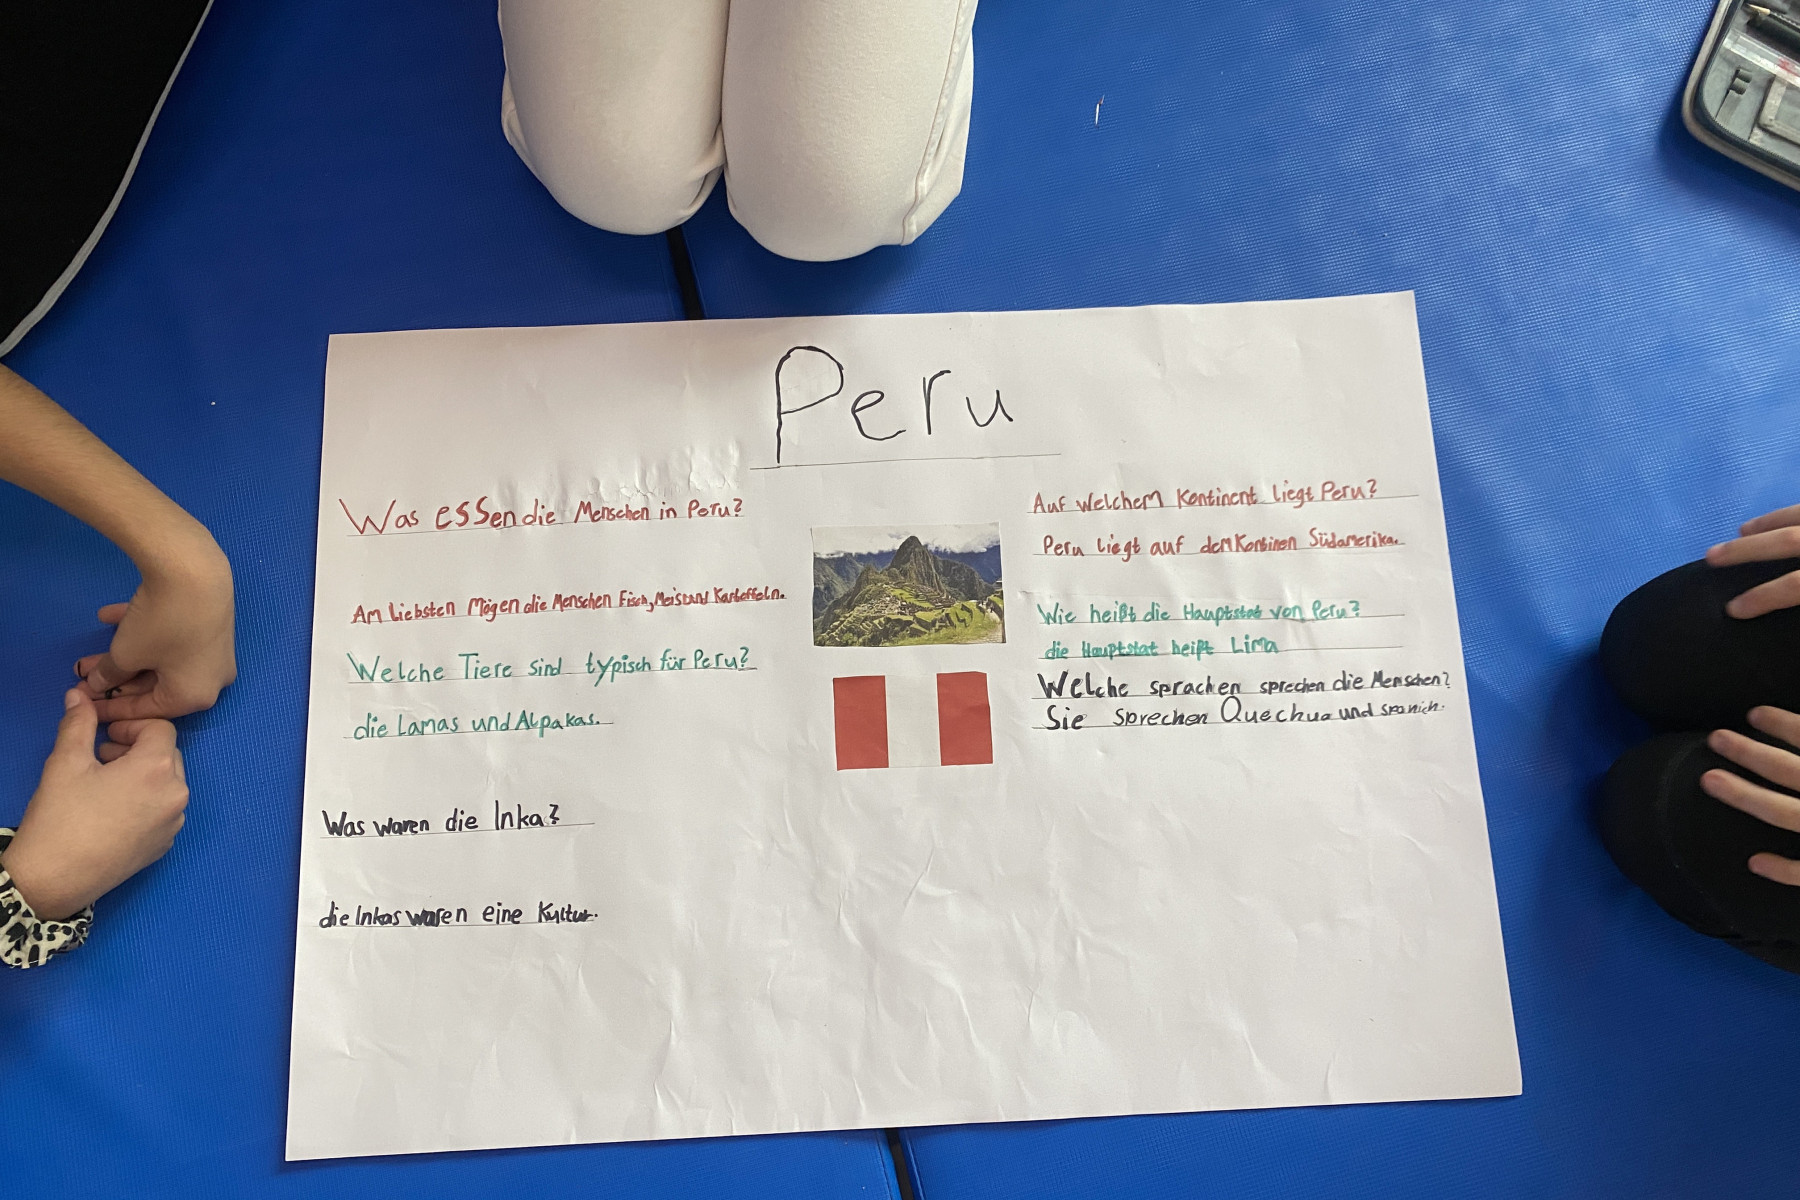 Peru
Was essen die Menschen in Peru?
Am liebsten Mögen die Menschen Fisch, Mais und Kartoffeln.
Welche Tiere sind typisch für Peru?
die Lamas und Alpakas.
Was waren die Inka?
die Inkas waren eine Kultur.
Auf welchem Kontinent liegt Peru?
Peru liegt auf dem Kontinen Südamerika.
Wie heißt die Hauptstat von Peru?
die Hauptstat heißt Lima
Welche sprachen sprechen die Menschen?
Sie sprechen Quechua und spanich.